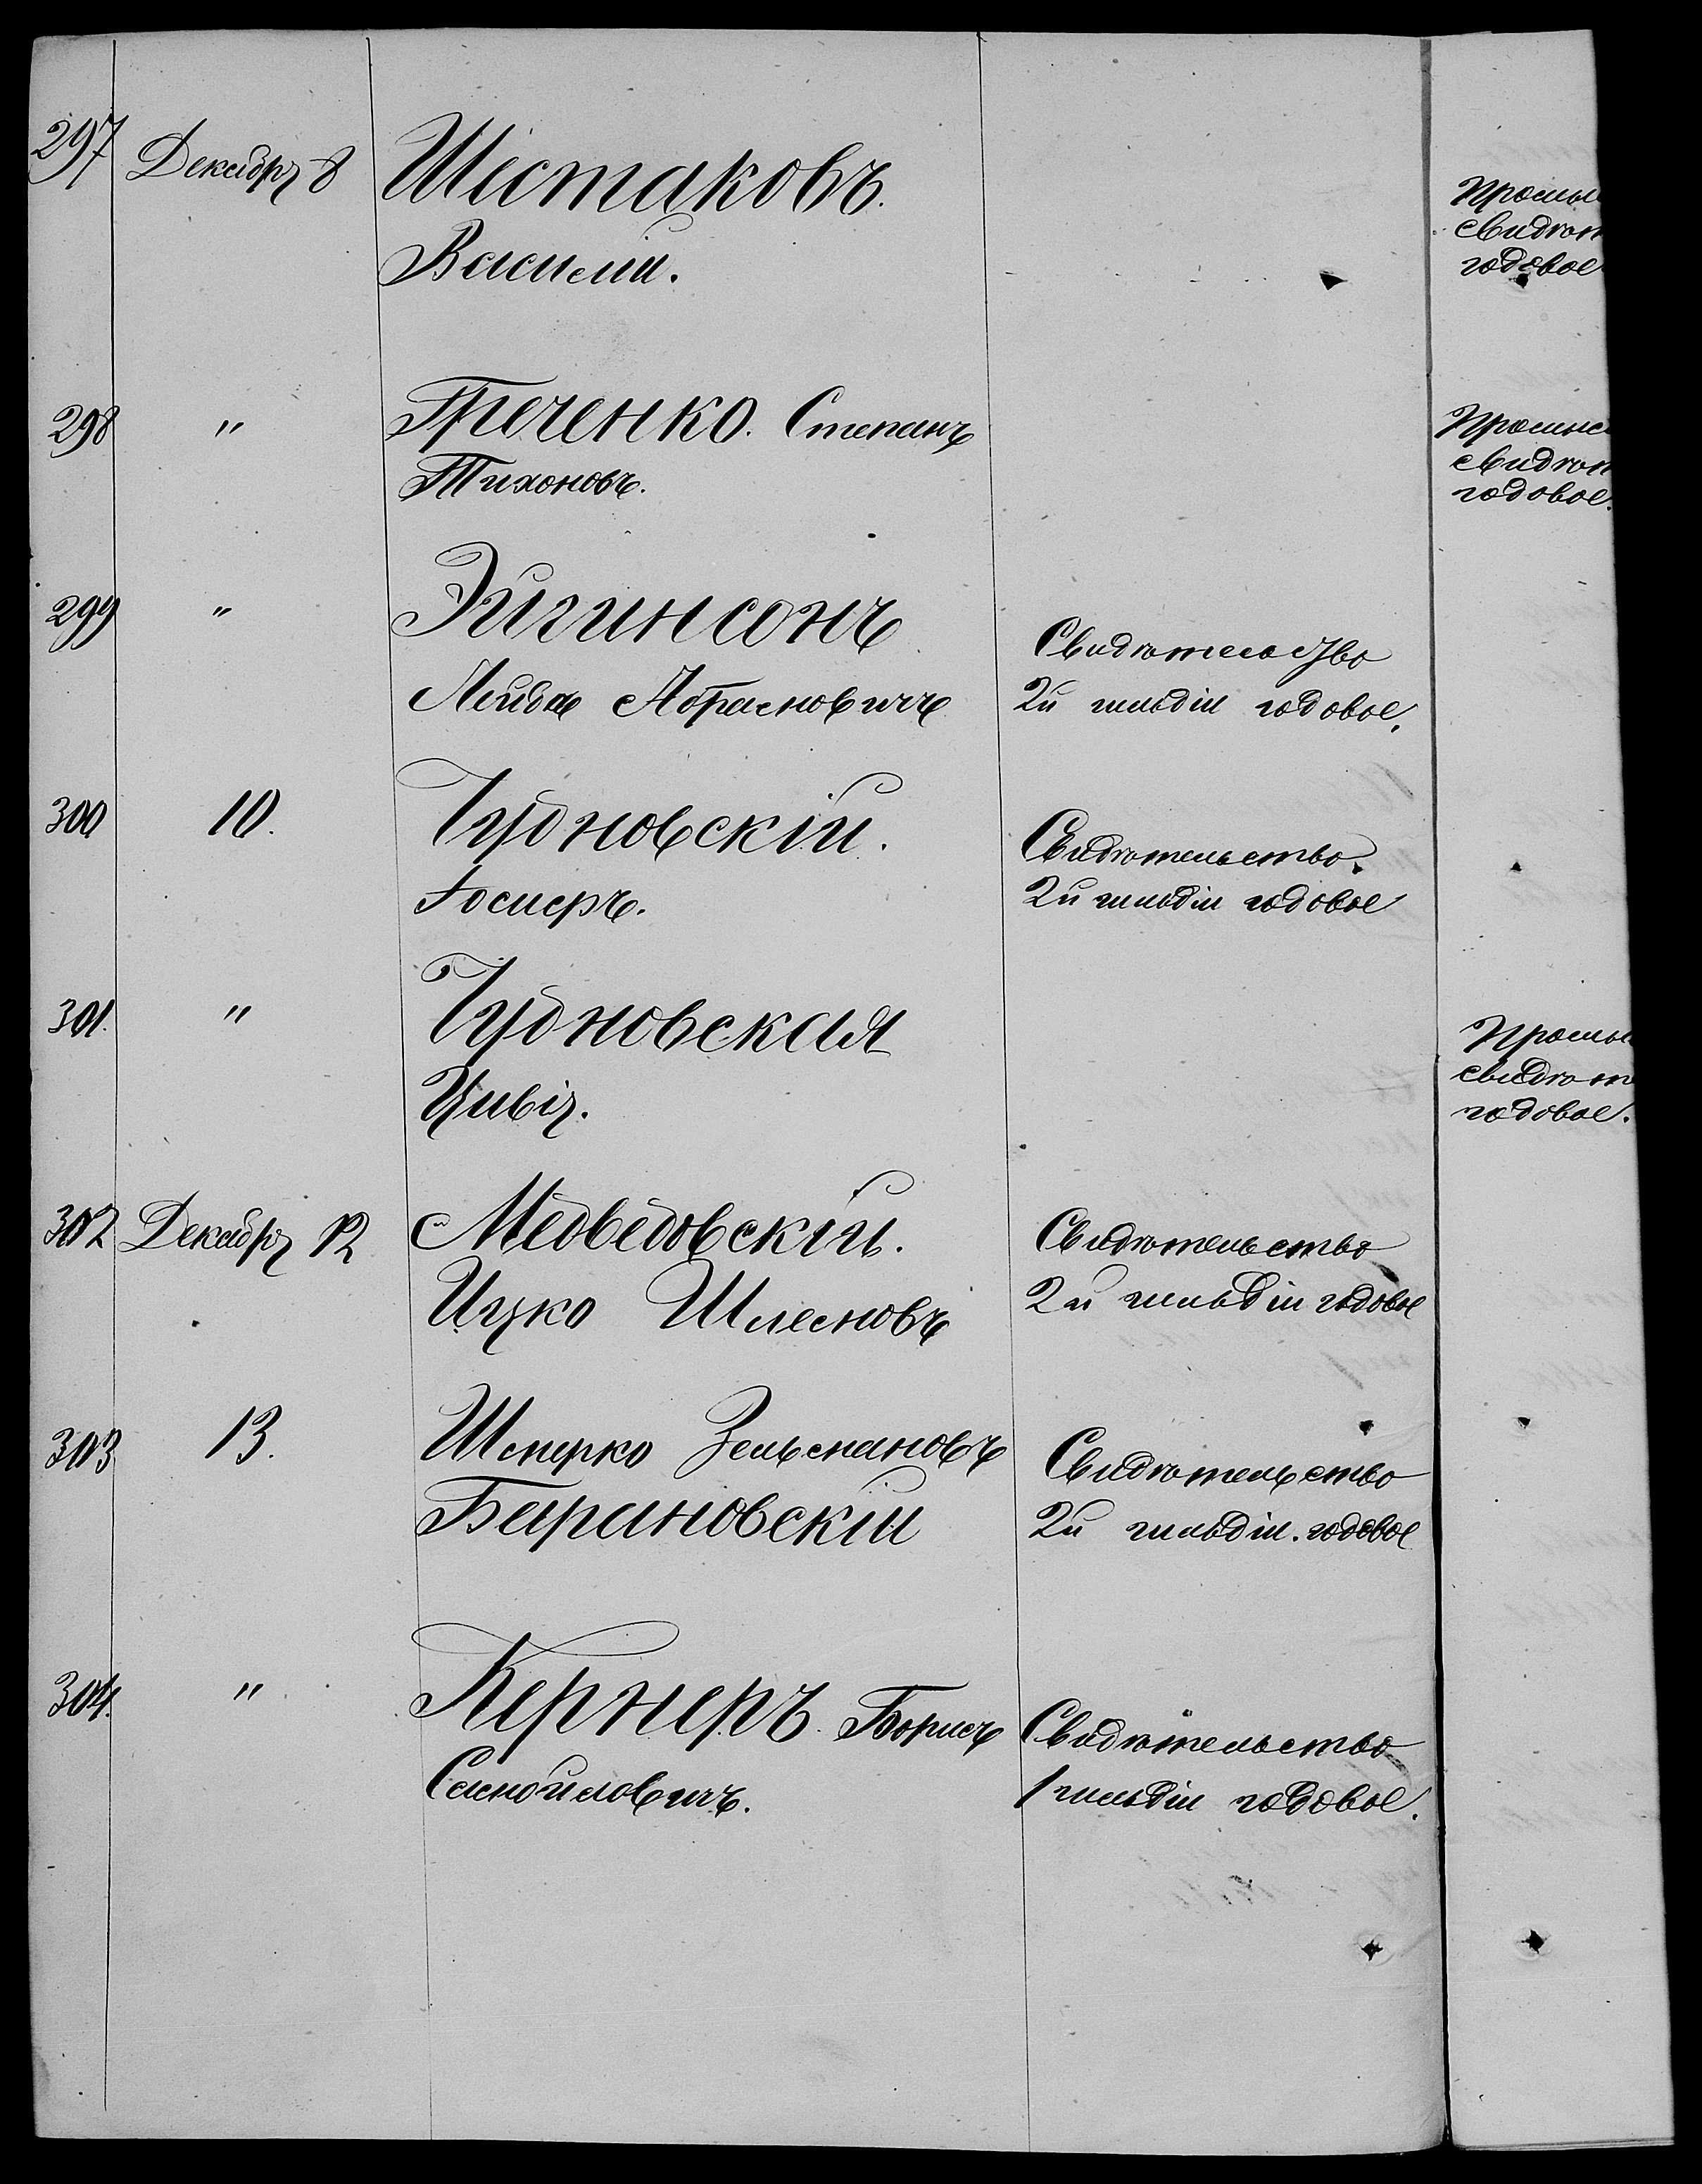 297 Декабря 8 Шестаковъ.
Василій.
Промы
свидѣт
годовое
298 " Греченко. Степанъ
Тихоновъ.
Промыс
свидѣт
годовое.
299 " Эйгинсонъ
Лейба Абрамовичъ
Свидѣтельство
2й гильдіи годовое.
300 10. Чудновскій.
Іосиеръ.
Свидѣтельство
2й гильдіи годовое
301. " Чудновская
Цивія.
Промы
свидѣт
годовое.
302 Декабря 12 Медведовскій.
Ицко Шлемовъ
Свидѣтельство
2й гильдіи годовое
303 13. Шмерко Зельмановъ
Барановскій
Свидѣтельство
2й гильдіи. годовое
304. " Кернеръ. Борисъ
Самойловичъ.
Свидѣтельство
1 гильдіи годовое.